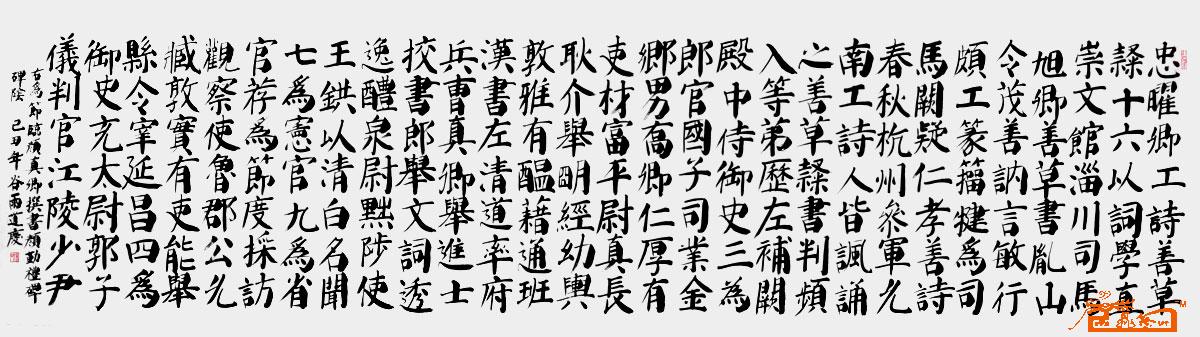 忠曜卿工詩善草
隸十六以詞學直
崇文館淄川司馬
旭卿善草書胤山
令茂善訥言敏行
頗工篆籀犍為司
馬闕疑仁孝善詩
春秋杭州叅軍允
南工詩人皆諷誦
之善草隸書判頻
入等第歷左補闕
殿中侍御史三為
郎官國子司業金
鄉男喬卿仁厚有
吏材富平尉真長
耿介舉明經幼輿
敦雅有醞藉通班
漢書左清道率府
兵曹真卿舉進士
挍書郎舉文詞透
逸醴泉尉黜陟使
王鉷以清白名聞
七為憲官九為省
官荐為節度採訪
觀察使魯郡公允
臧敦實有吏能舉
縣令宰延昌四為
御史充太尉郭子
儀判官江陵少尹
右為節臨顏真卿撰書顏勤禮碑
碑陰 己丑年谷雨道慶